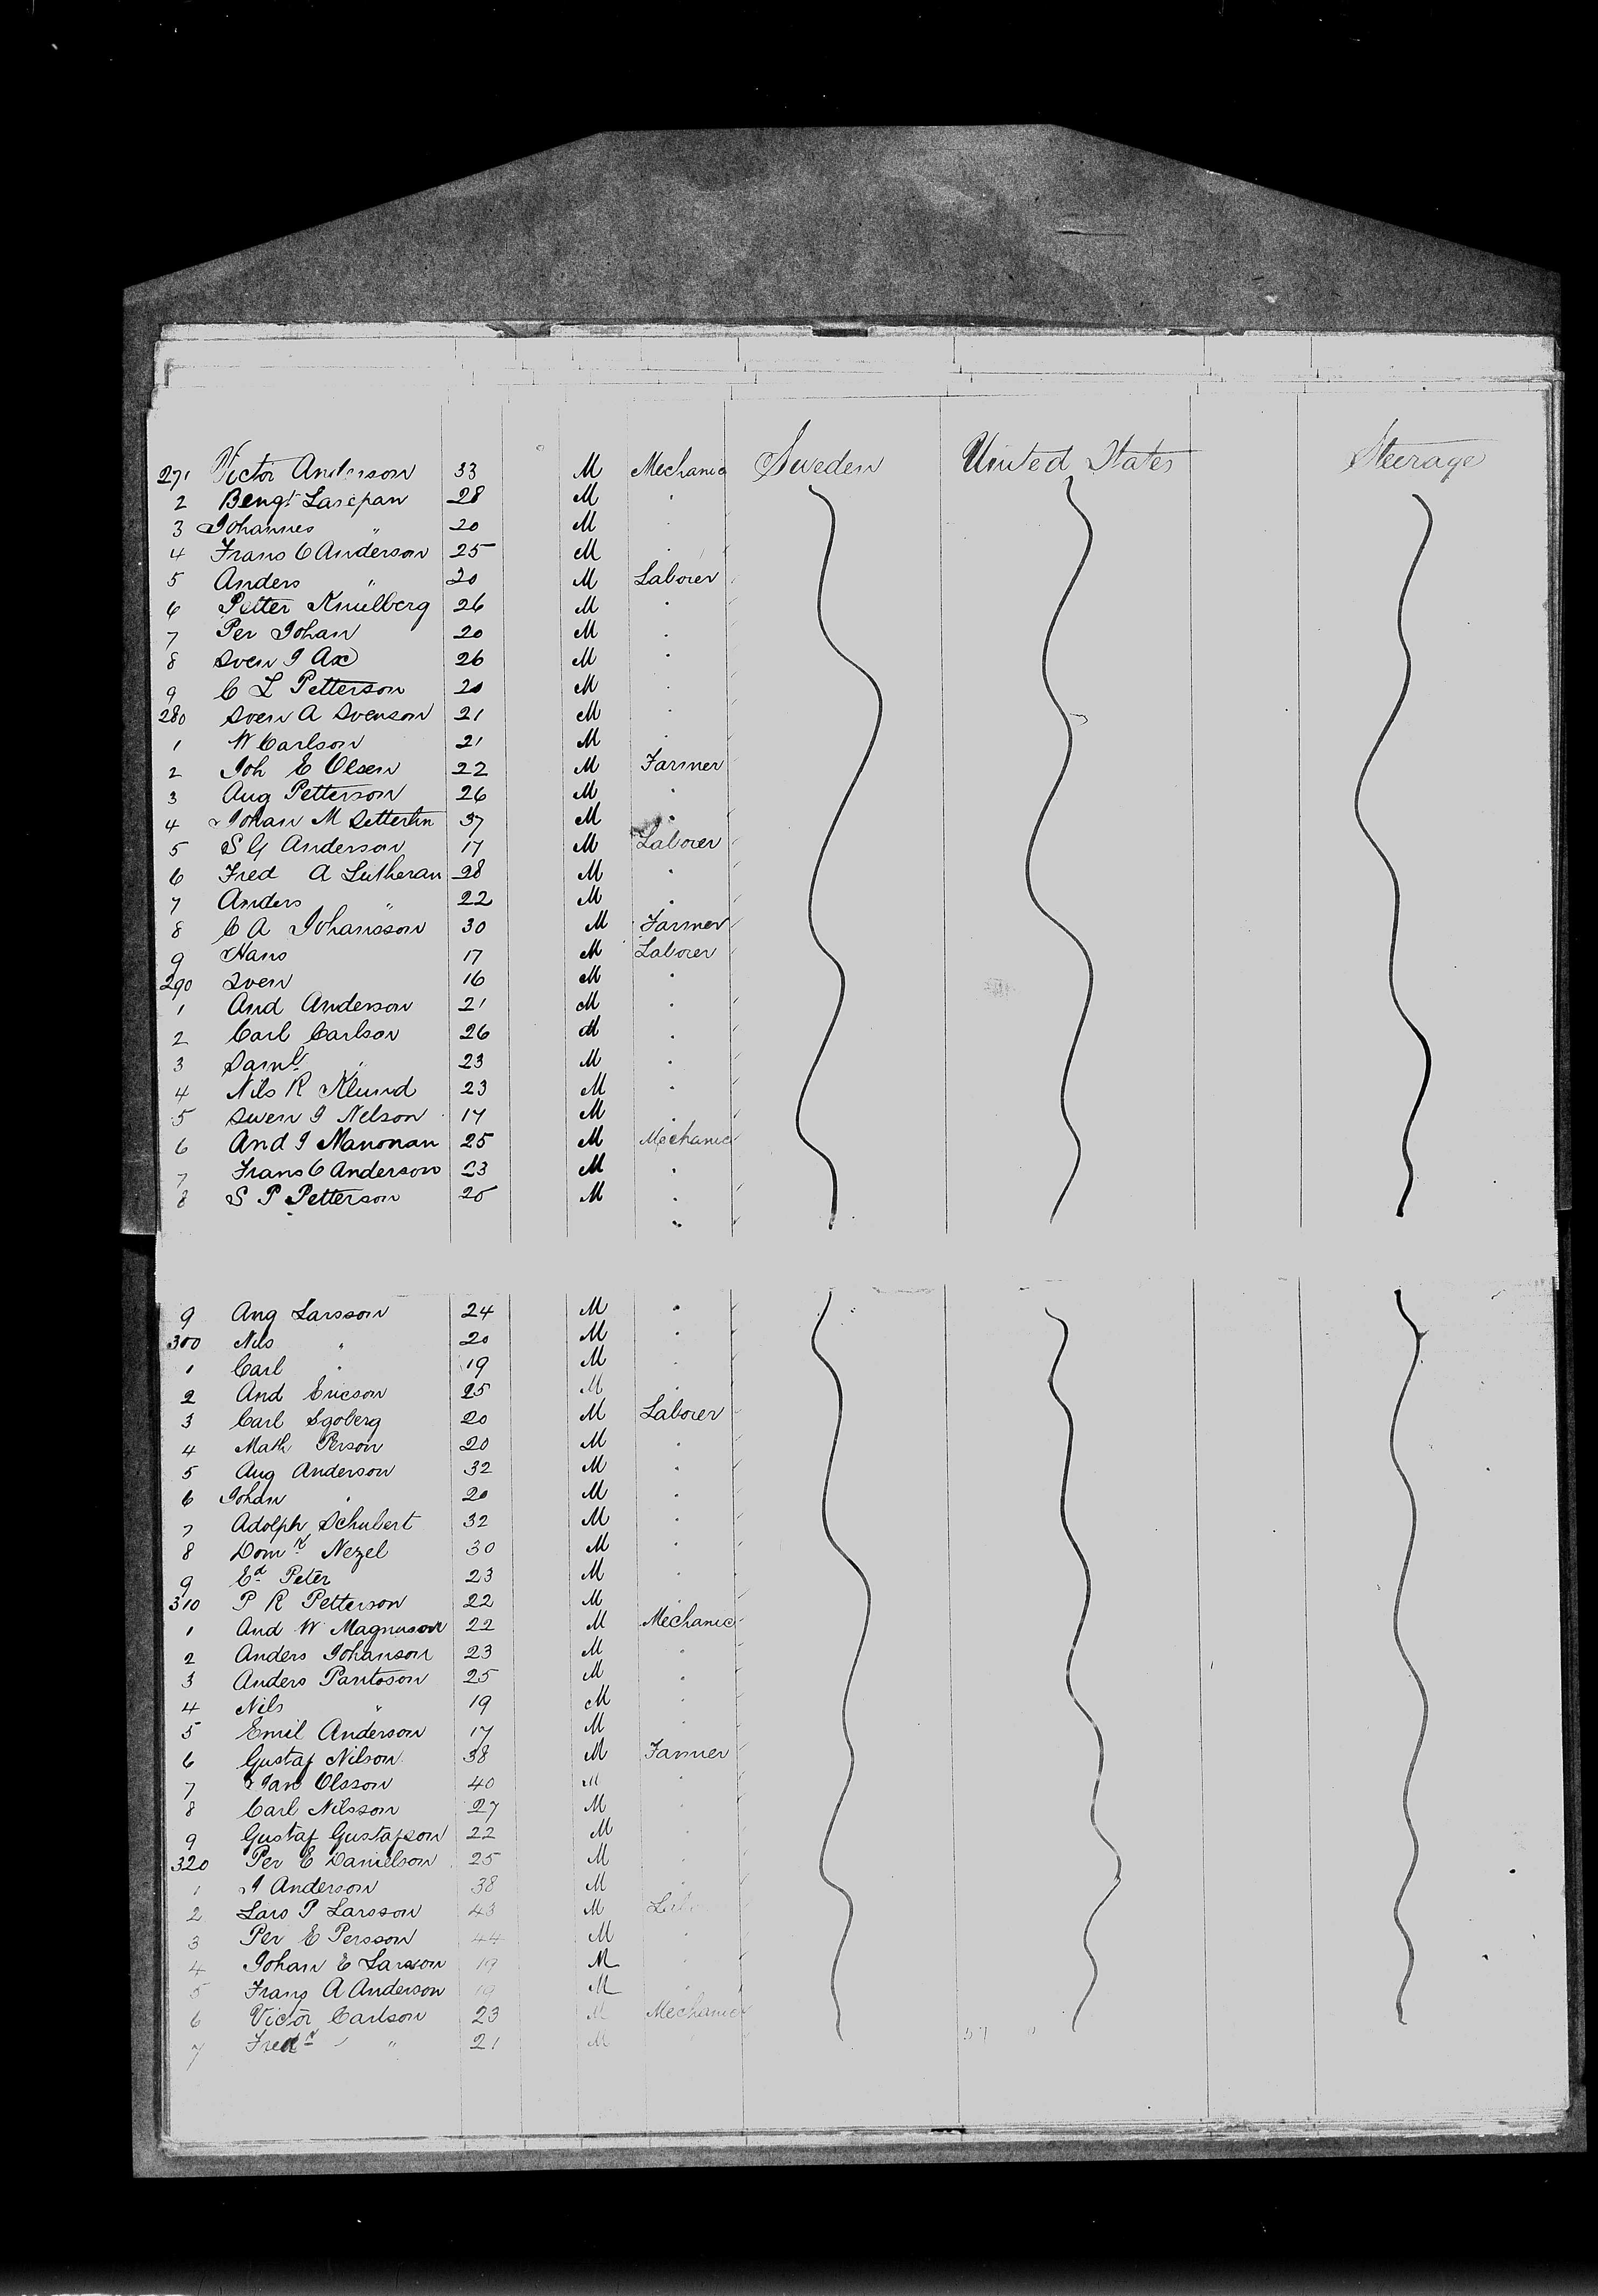 271 Victor Anderson 33 M Mechanic Sweden United States Steerage
2 Bengt 28 M "
3 Johannes " 20 M "
4 Frans C Anderson 25 M "
5 Anders " 20 M Laborer
6 Petter 26 M "
7 Per Johan 20 M "
8 Sven J Ax 26 M "
9 C L Petterson 20 M "
280 Sven A Svenson 21 M "
1 W Carlson 21 M "
2 Joh E Olsen 22 M Farmer
3 Aug Petterson 26 M "
4 Johan M 37 M "
5 S G Anderson 17 M Laborer
6 Fred A Lutheran 28 M "
7 Anders " 22 M "
8 C A Johansson 30 M Farmer
9 Hans 17 M Laborer
290 Sven 16 M "
1 And Anderson 21 M "
2 Carl Carlson 26 M "
3 Saml " 23 M "
4 Nils R Klund 23 M "
5 Swen J Nelson 17 M "
6 And J Manonan 25 M Mechanic
7 Frans C Anderson 23 M "
8 S P Petterson 25 M "
9 Aug Larsson 24 M "
300 Nils " 20 M "
1 Carl " 19 M "
2 And Ericson 25 M "
3 Carl Sgoberg 20 M Laborer
4 Math Person 20 M "
5 Aug Anderson 32 M "
6 Johan " 20 M "
7 Adolph Schubert 32 M "
8 Domk Nezel 30 M "
9 Ed Peter 23 M "
310 P R Petterson 22 M "
1 And W Magnuson 22 M Mechanic
2 Anders Johanson 23 M "
3 Anders Pantoson 25 M "
4 Nils " 19 M "
5 Emil Anderson 17 M "
6 Gustaf Nilson 38 M Farmer
7 Jan Olsson 40 M "
8 Carl Nilsson 27 M "
9 Gustaf Gustafson 22 M "
320 Per E Danielson 25 M "
1 J Anderson 38 M "
2 Lars P Larsson 43 M
3 Per E Persson 44 M "
4 Johan E Larson 19 M "
5 Frans A Anderson 19 M "
6 Victor Carlson 23 M Mechanic
7 Fredk " 21 M "